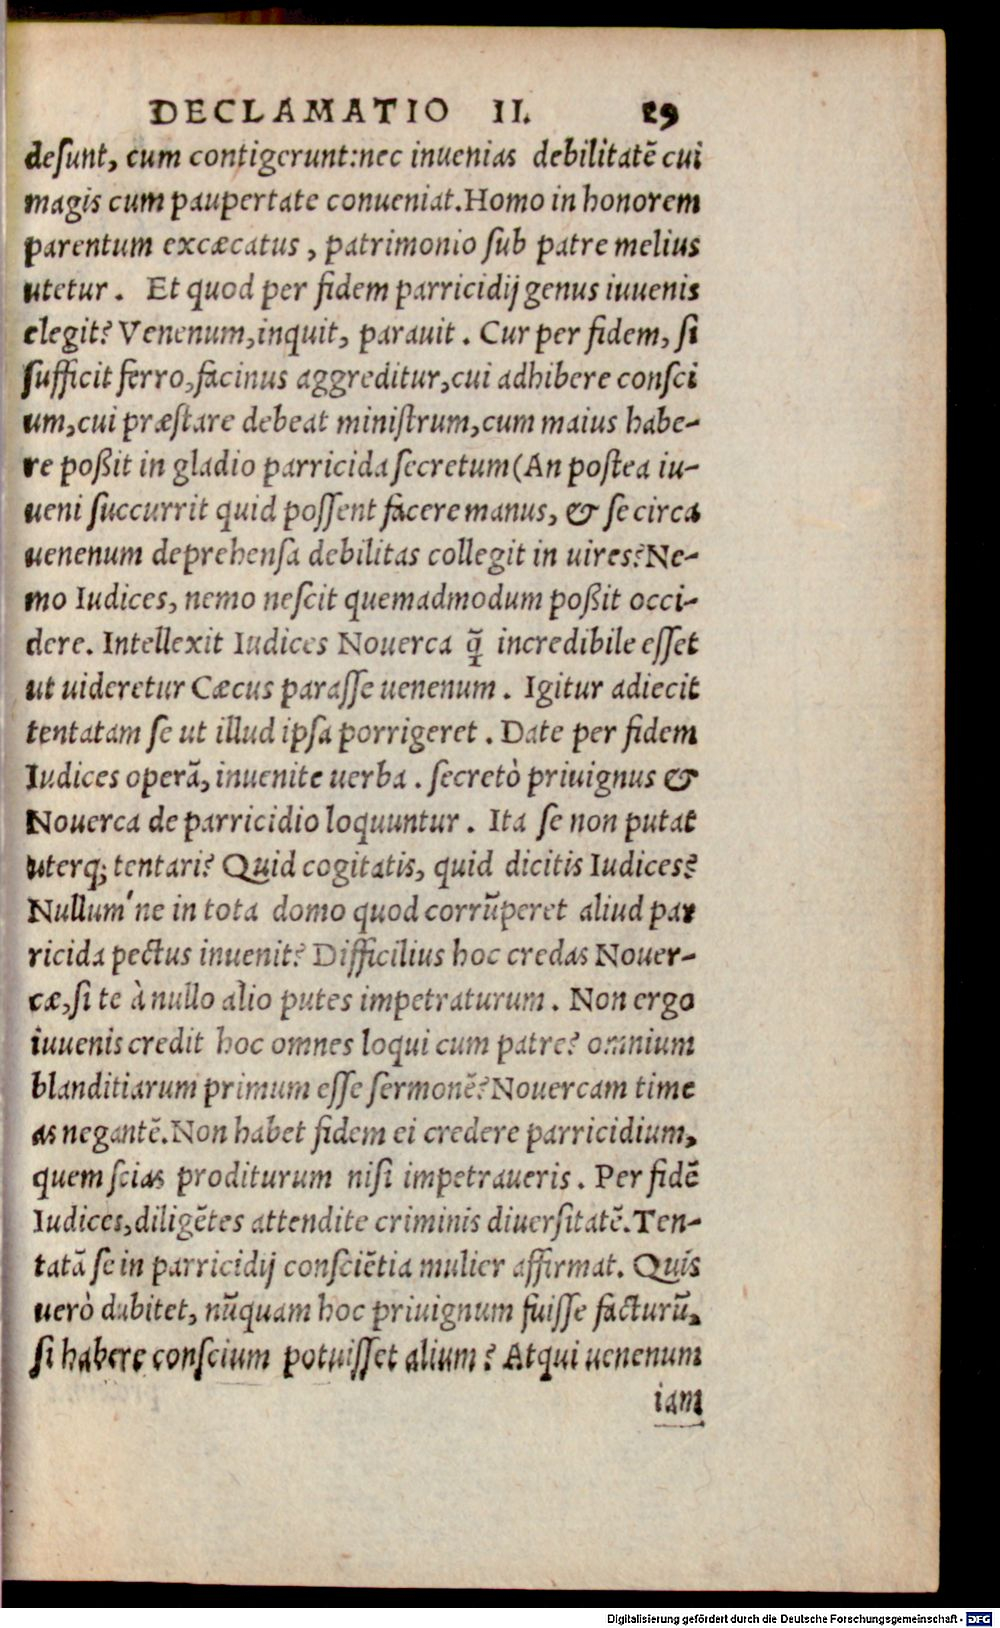 DECLAMATIO II. 29
desunt, cum contigerunt: nec inuenias debilitatē cui
magis cum paupertate conueniat. Homo in honorem
parentum excæcatus, patrimonio sub patre melius
utetur. Et quod per fidem parricidij genus iuuenis
elegit? Venenum, inquit, parauit. Cur per fidem, si
sufficit ferro, facinus aggreditur, cui adhibere consci
um, cui præstare debeat ministrum, cum maius habe-
re poßit in gladio parricida secretum (An postea iu-
ueni succurrit quid possent facere manus, & se circa
uenenum deprehensa debilitas collegit in uires? Ne-
mo Iudices, nemo nescit quemadmodum poßit occi-
dere. Intellexit Iudices Nouerca q̄ incredibile esset
ut uideretur Cæcus parasse uenenum. Igitur adiecit
tentatam se ut illud ipsa porrigeret. Date per fidem
Iudices operā, inuenite uerba. secretò priuignus &
Nouerca de parricidio loquuntur. Ita se non putat
uterq; tentari? Quid cogitatis, quid dicitis Iudices?
Nullum'ne in tota domo quod corrūperet aliud par
ricida pectus inuenit? Difficilius hoc credas Nouer-
cæ, si te à nullo alio putes impetraturum. Non ergo
iuuenis credit hoc omnes loqui cum patre? omnium
blanditiarum primum esse sermonē? Nouercam time
as negantē. Non habet fidem ei credere parricidium,
quem scias proditurum nisi impetraueris. Per fidē
Iudices, diligētes attendite criminis diuersitatē. Ten-
tatā se in parricidij consciētia mulier affirmat. Quis
uerò dubitet, nūquam hoc priuignum fuisse facturū,
si habere conscium potuisset alium? Atqui uenenum
iam
Digitalisierung gefördert durch die Deutsche Forschungsgemeinschaft - DFG